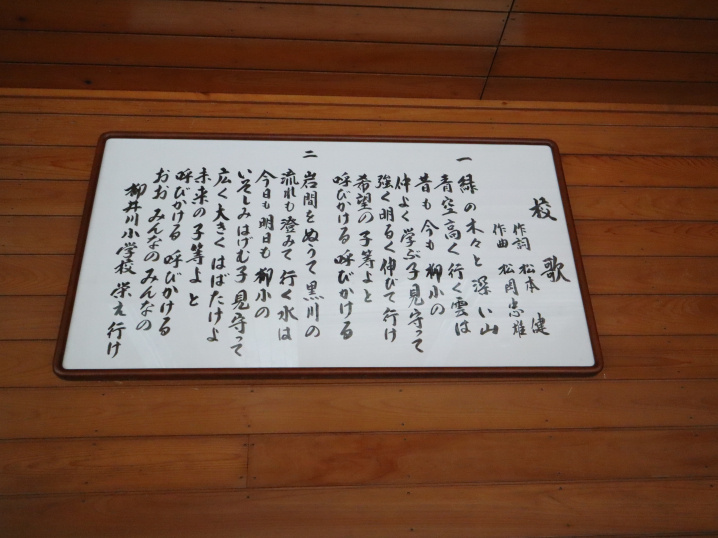 校歌
作詞 松本 健
作曲 松岡忠雄
一 緑の木々と深い山
青空高く行く雲は
昔も今も柳小の
仲よく学ぶ子見守って
強く明るく伸びて行け
希望の子等よと
呼びかける 呼びかける
二 岩間をぬうて黒川の
流れも澄みて行く水は
今日も明日も柳小の
いそしみはげむ子見守って
広く大きくはばたけよ
未来の子等よと
呼びかける 呼びかける
おお みんなの みんなの
柳井川小学校 栄え行け